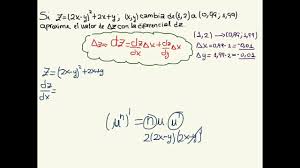 Si Z=(2x-y)²+2x+y, (x,y) cambia de (1,2) a (0,99, 1,99)
aproxima el valor de ΔZ con la diferencial dz
ΔZ ≈ dZ = dz/dx Δx + dz/dy Δy
(1,2) → (0,99, 1,99)
Δx = 0,99-1 = -0,01
Δy = 1,99-2 = -0,01
Z=(2x-y)²+2x+y
dz/dx =
(uⁿ)' = n u u'
2(2x-y)(2x-y)'